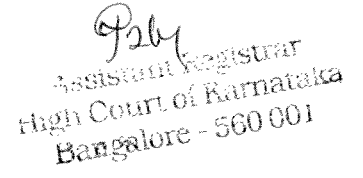 Assistant Registrar
High Court of Karnataka
Bangalore - 560 001